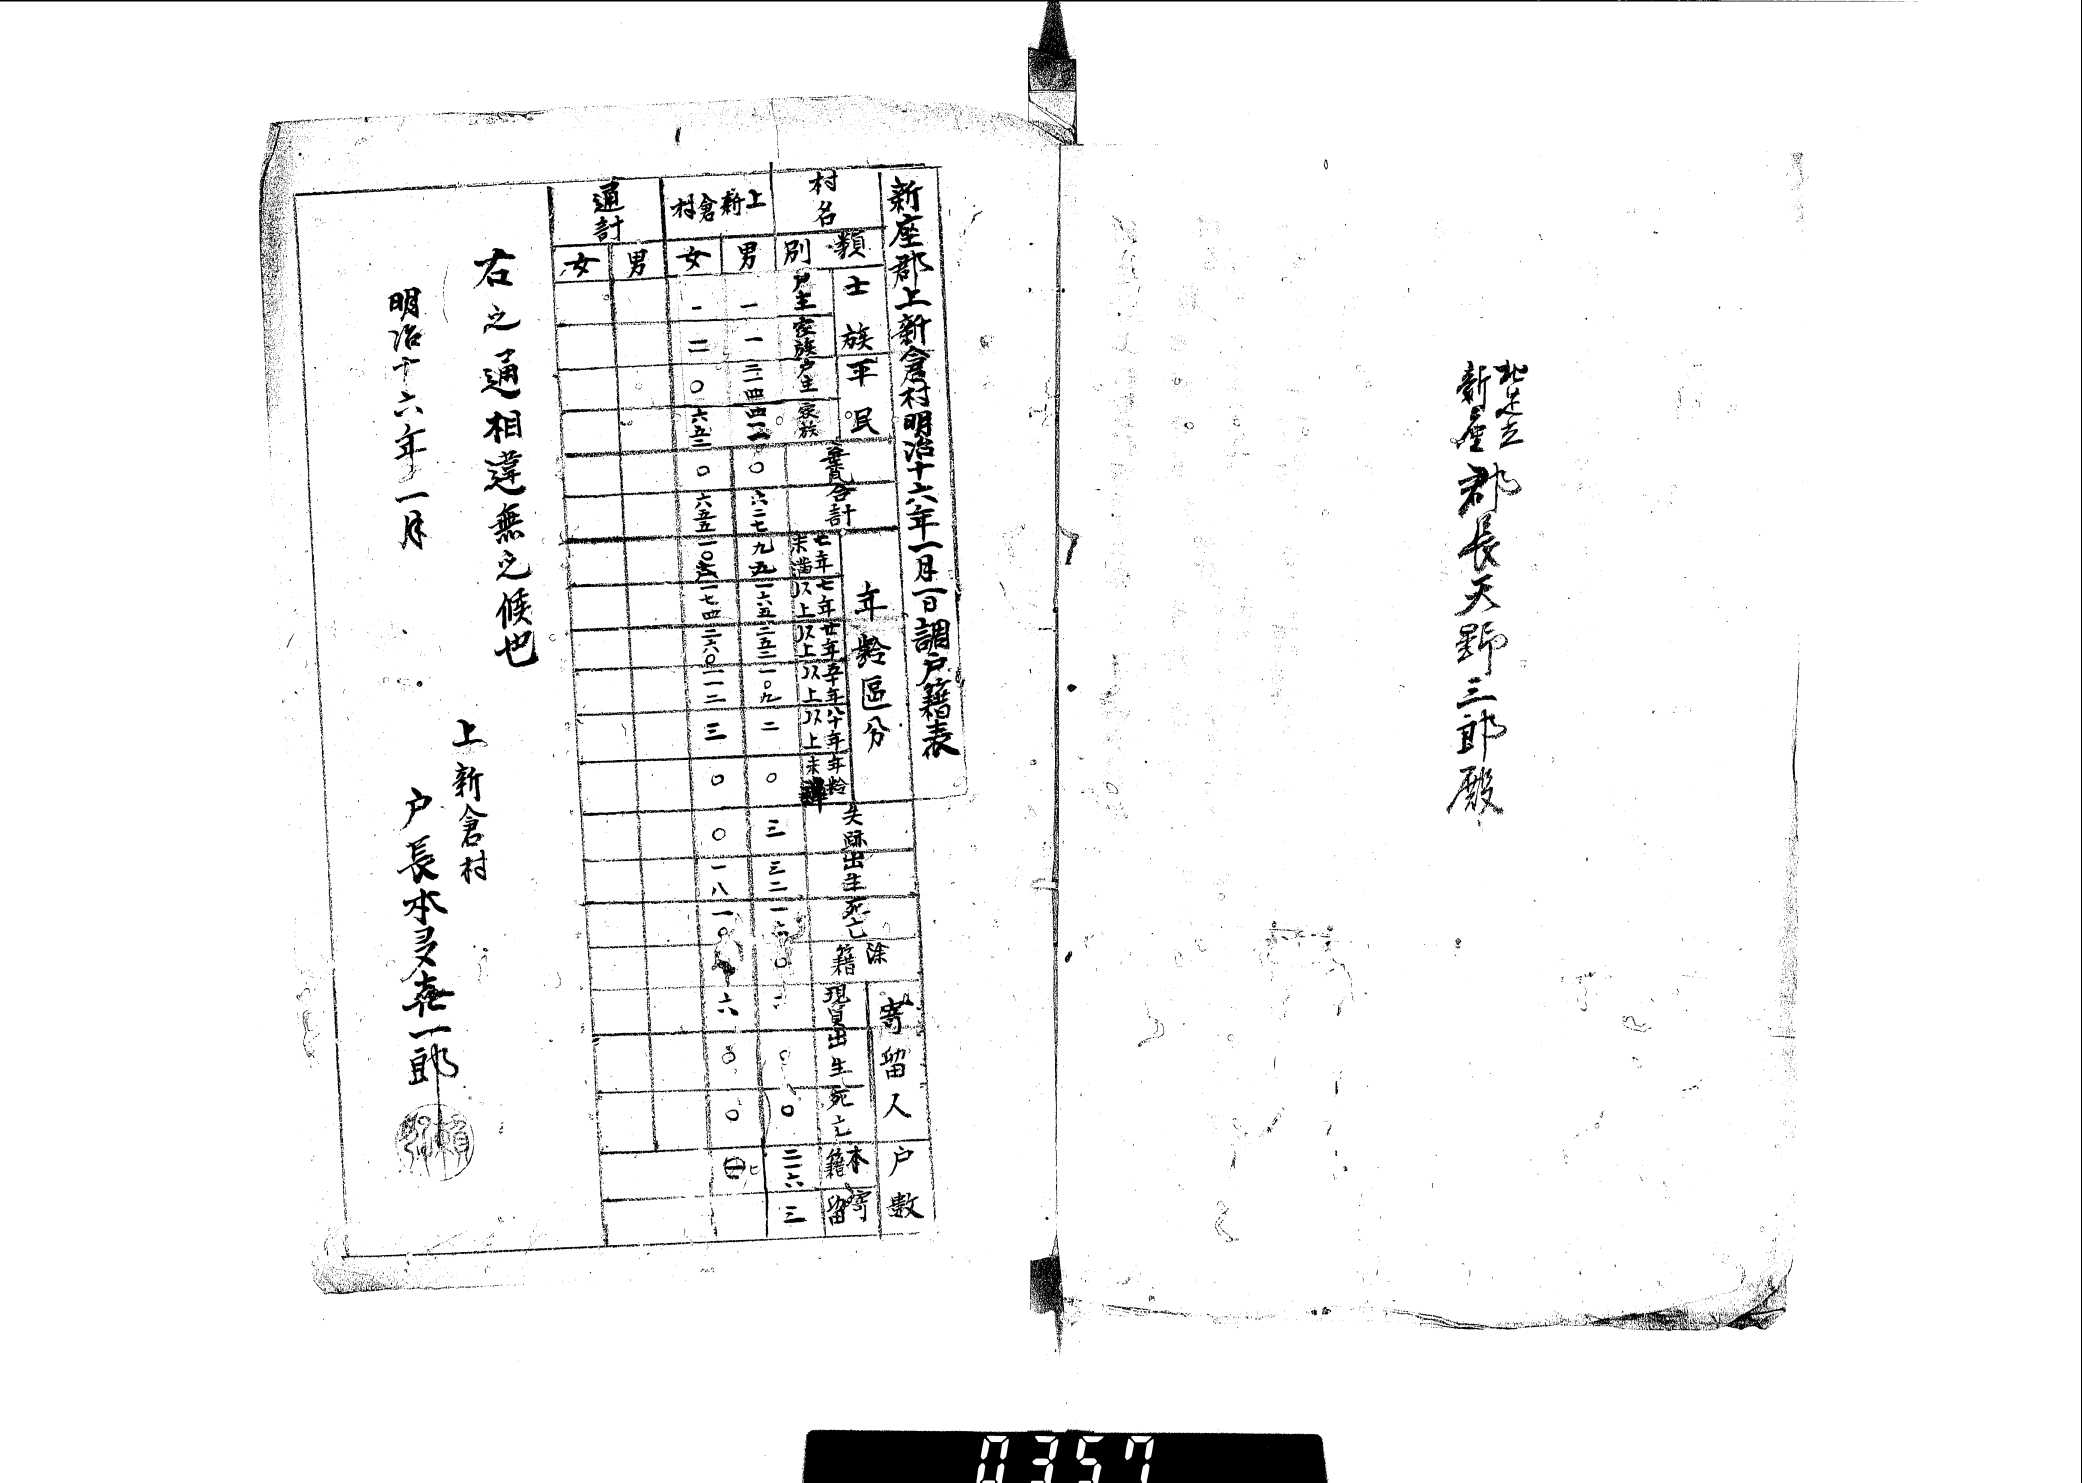 北足立
新座
郡長天野三郎殿
新座郡上新倉村明治十六年一月一日調戸籍表
村名 類別 士族 戸主 家族 平民 戸主 家族 棄児 合計 年齢區分 七年未満 七年以上 廿年以上 五十年以上 八十年以上 年齢未 失踪 出生 死亡 除籍 寄留人 現員 出生 死亡 戸數 本籍 寄留
上新倉村
男 一 一 二一四 四一一 〇 六二七 九五 一六五 二五二 一〇九 二 〇 三 三二 一六 〇 二 〇 〇 二一六 三
女 一 二 〇 六五二 〇 六五五 一〇六 一七四 二六〇 一一二 三 〇 〇 一八 一〇 六 〇 〇
通計
男
女
右之通相違無之候也
明治十六年一月
上新倉村
戸長本多喜一郎
0357